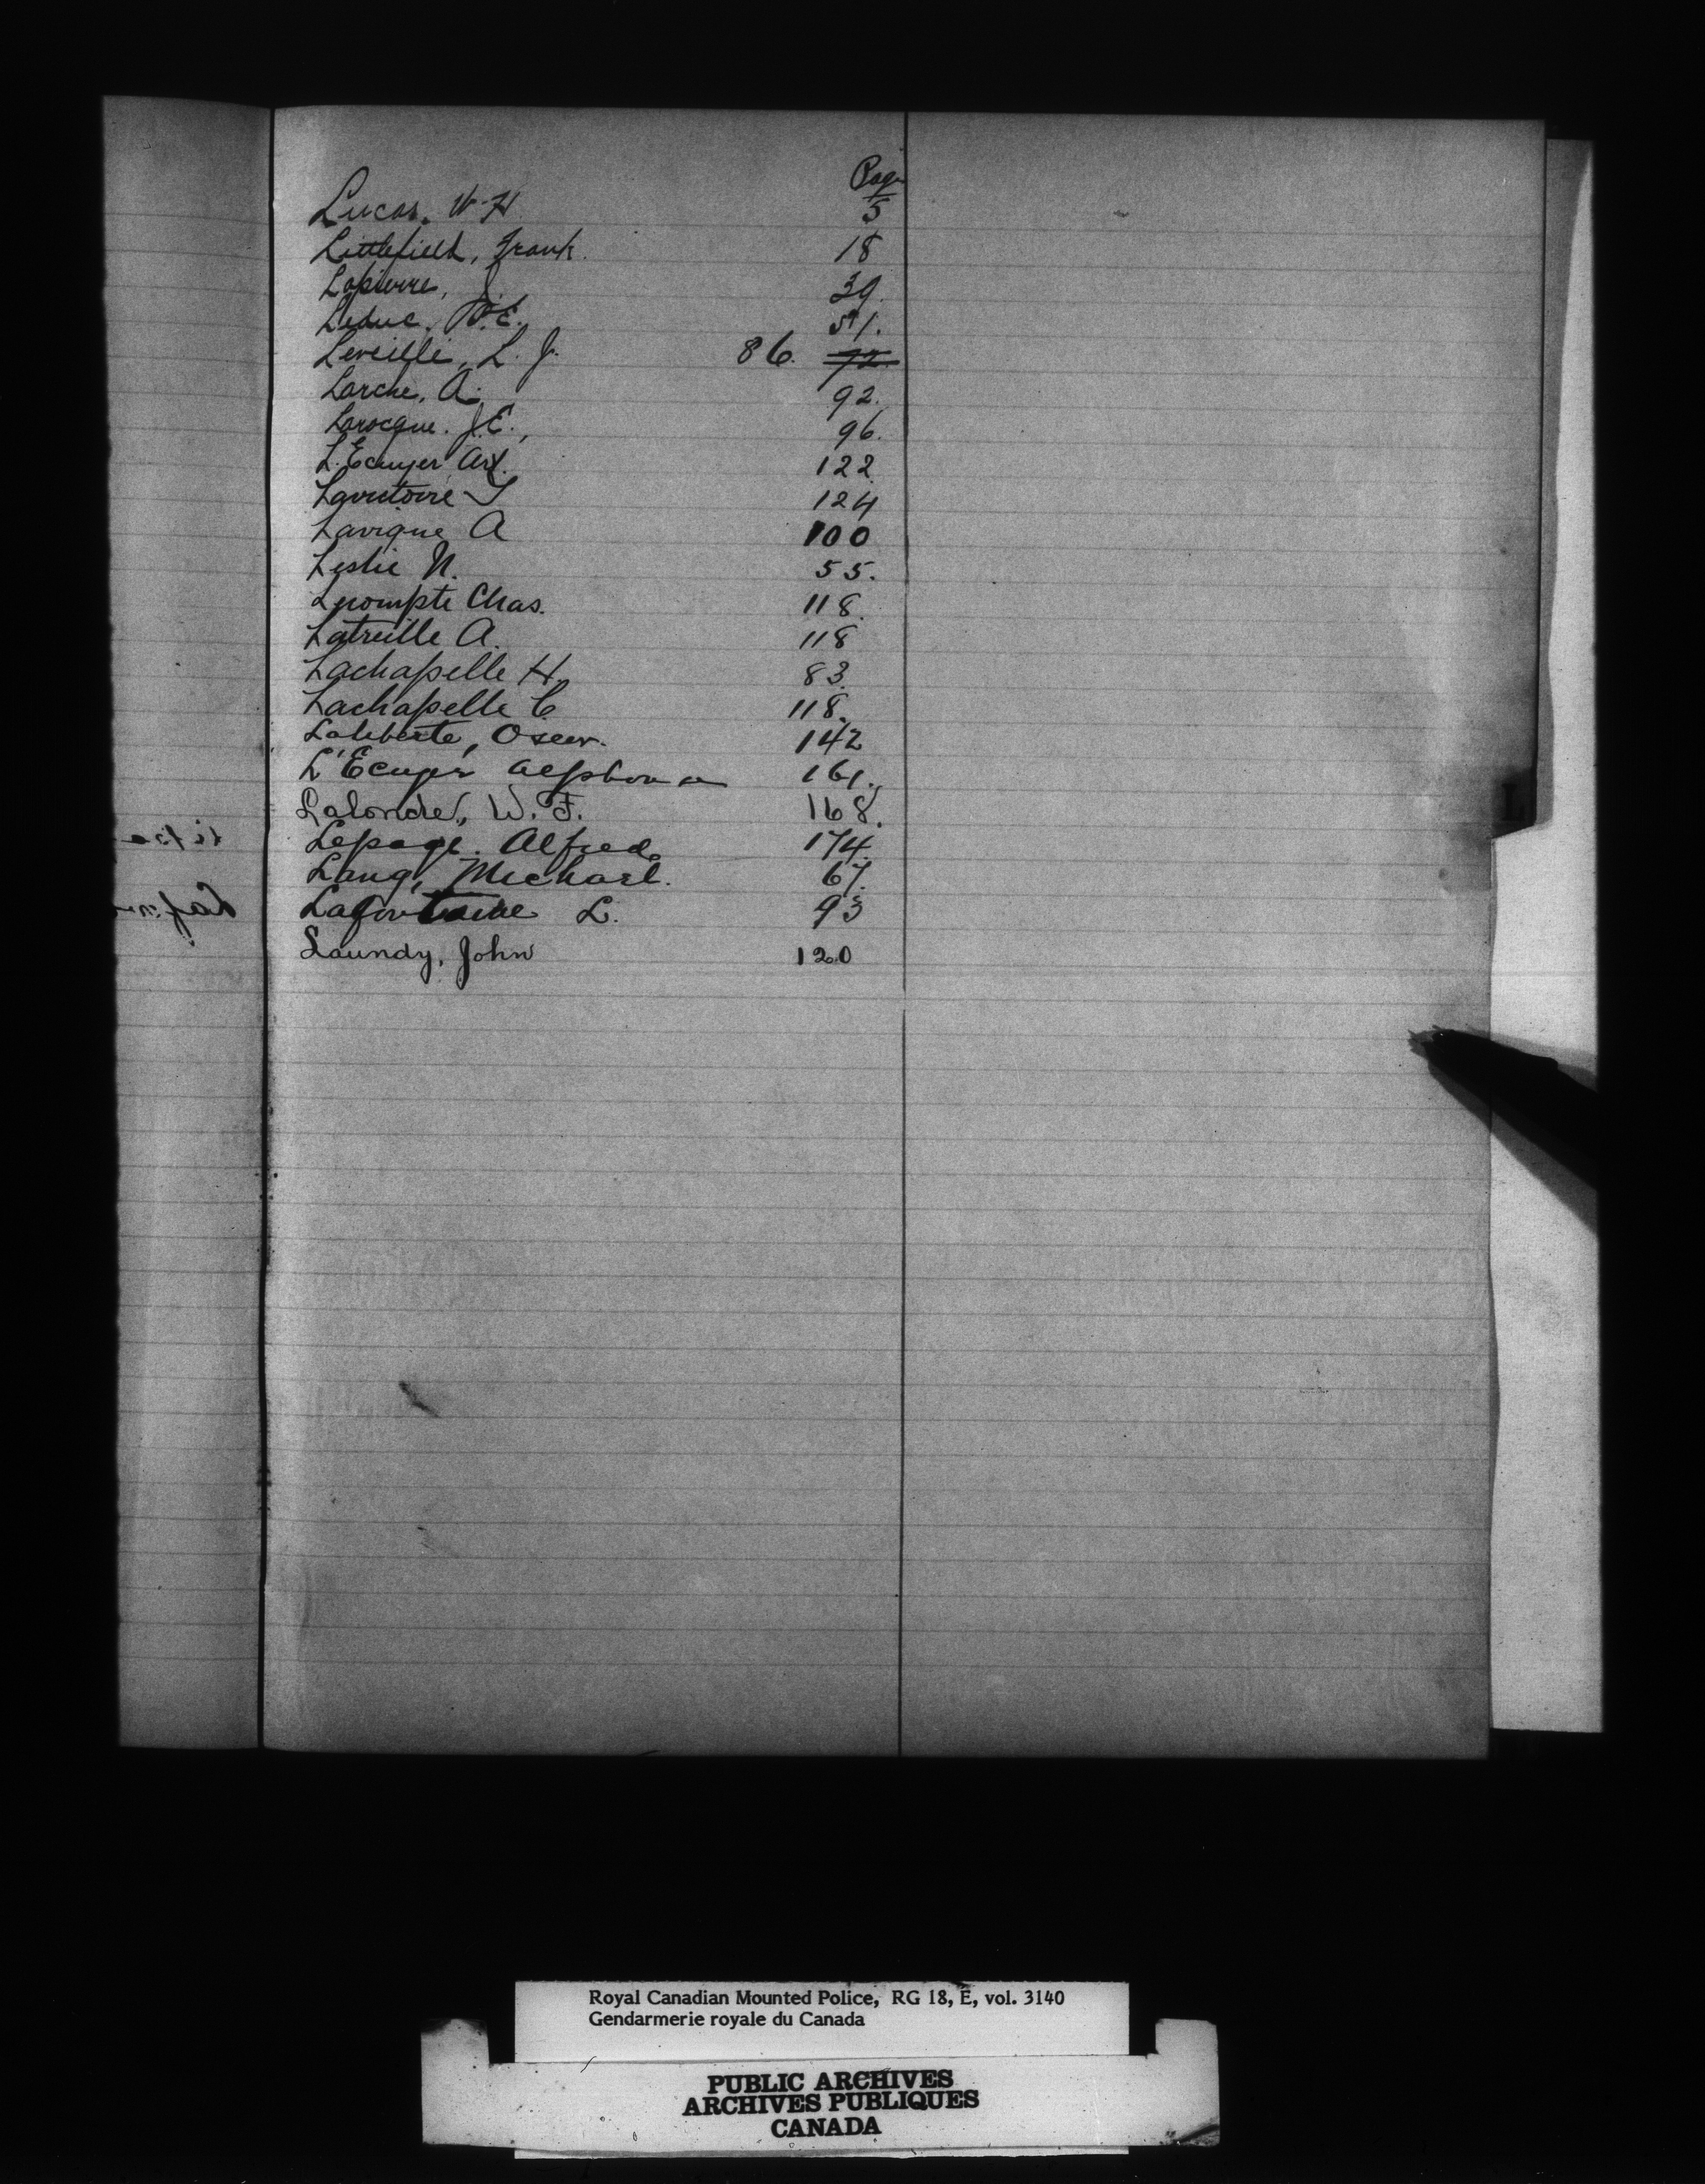 Page
Lucas, W. H. 5
Littlefield, Frank. 18
Lapierre, J. 39.
Leduc, P. E. 51.
Leveille, L. J. 86. 72.
Larche, A. 92.
Larocque. J. E., 96.
L. Ecuyer Art. 122
Lavictoire T 124
Lavigne A 100
Leslie N. 55.
Lecompte Chas. 118.
Latreille A. 118
Lachapelle H. 83.
Lachapelle C. 118.
Laliberte, Oscar. 142
L'Ecuyer Alphonse 161.
Lalonde, W. F. 168.
Lepage. Alfred. 174.
Lang, Michael. 67.
Lafontaine L. 93
Laundy, John 120
L
Royal Canadian Mounted Police, RG 18, E, vol. 3140
Gendarmerie royale du Canada
PUBLIC ARCHIVES
ARCHIVES PUBLIQUES
CANADA